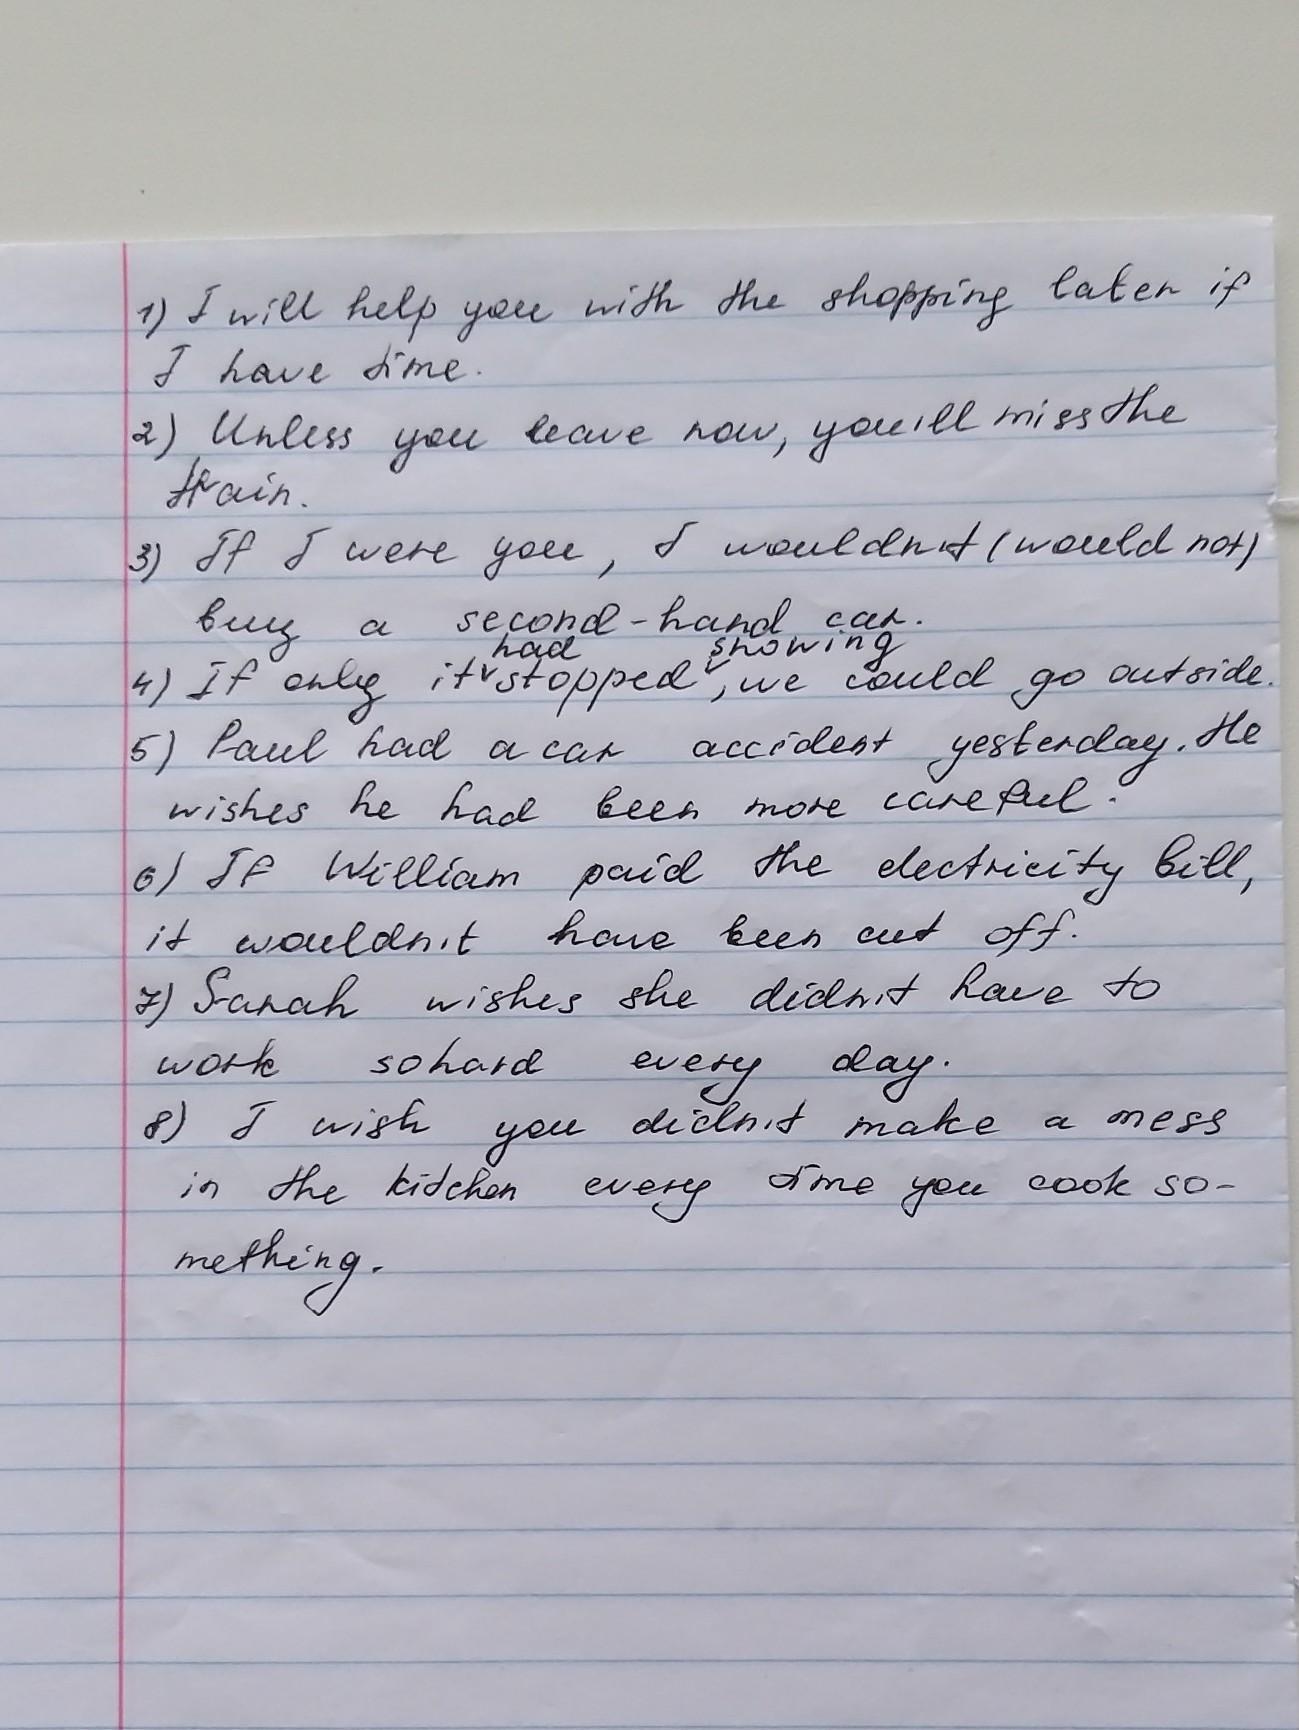 1) I will help you with the shopping later if
I have time.
2) Unless you leave now, you'll miss the
train.
3) If I were you, I wouldn't (would not)
buy a second-hand car.
had snowing
4) If only it stopped, we could go outside.
5) Paul had a car accident yesterday. He
wishes he had been more careful.
6) If William paid the electricity bill,
it wouldn't have been cut off.
7) Sarah wishes she didn't have to
work so hard every day.
8) I wish you didn't make a mess
in the kitchen every time you cook so-
mething.